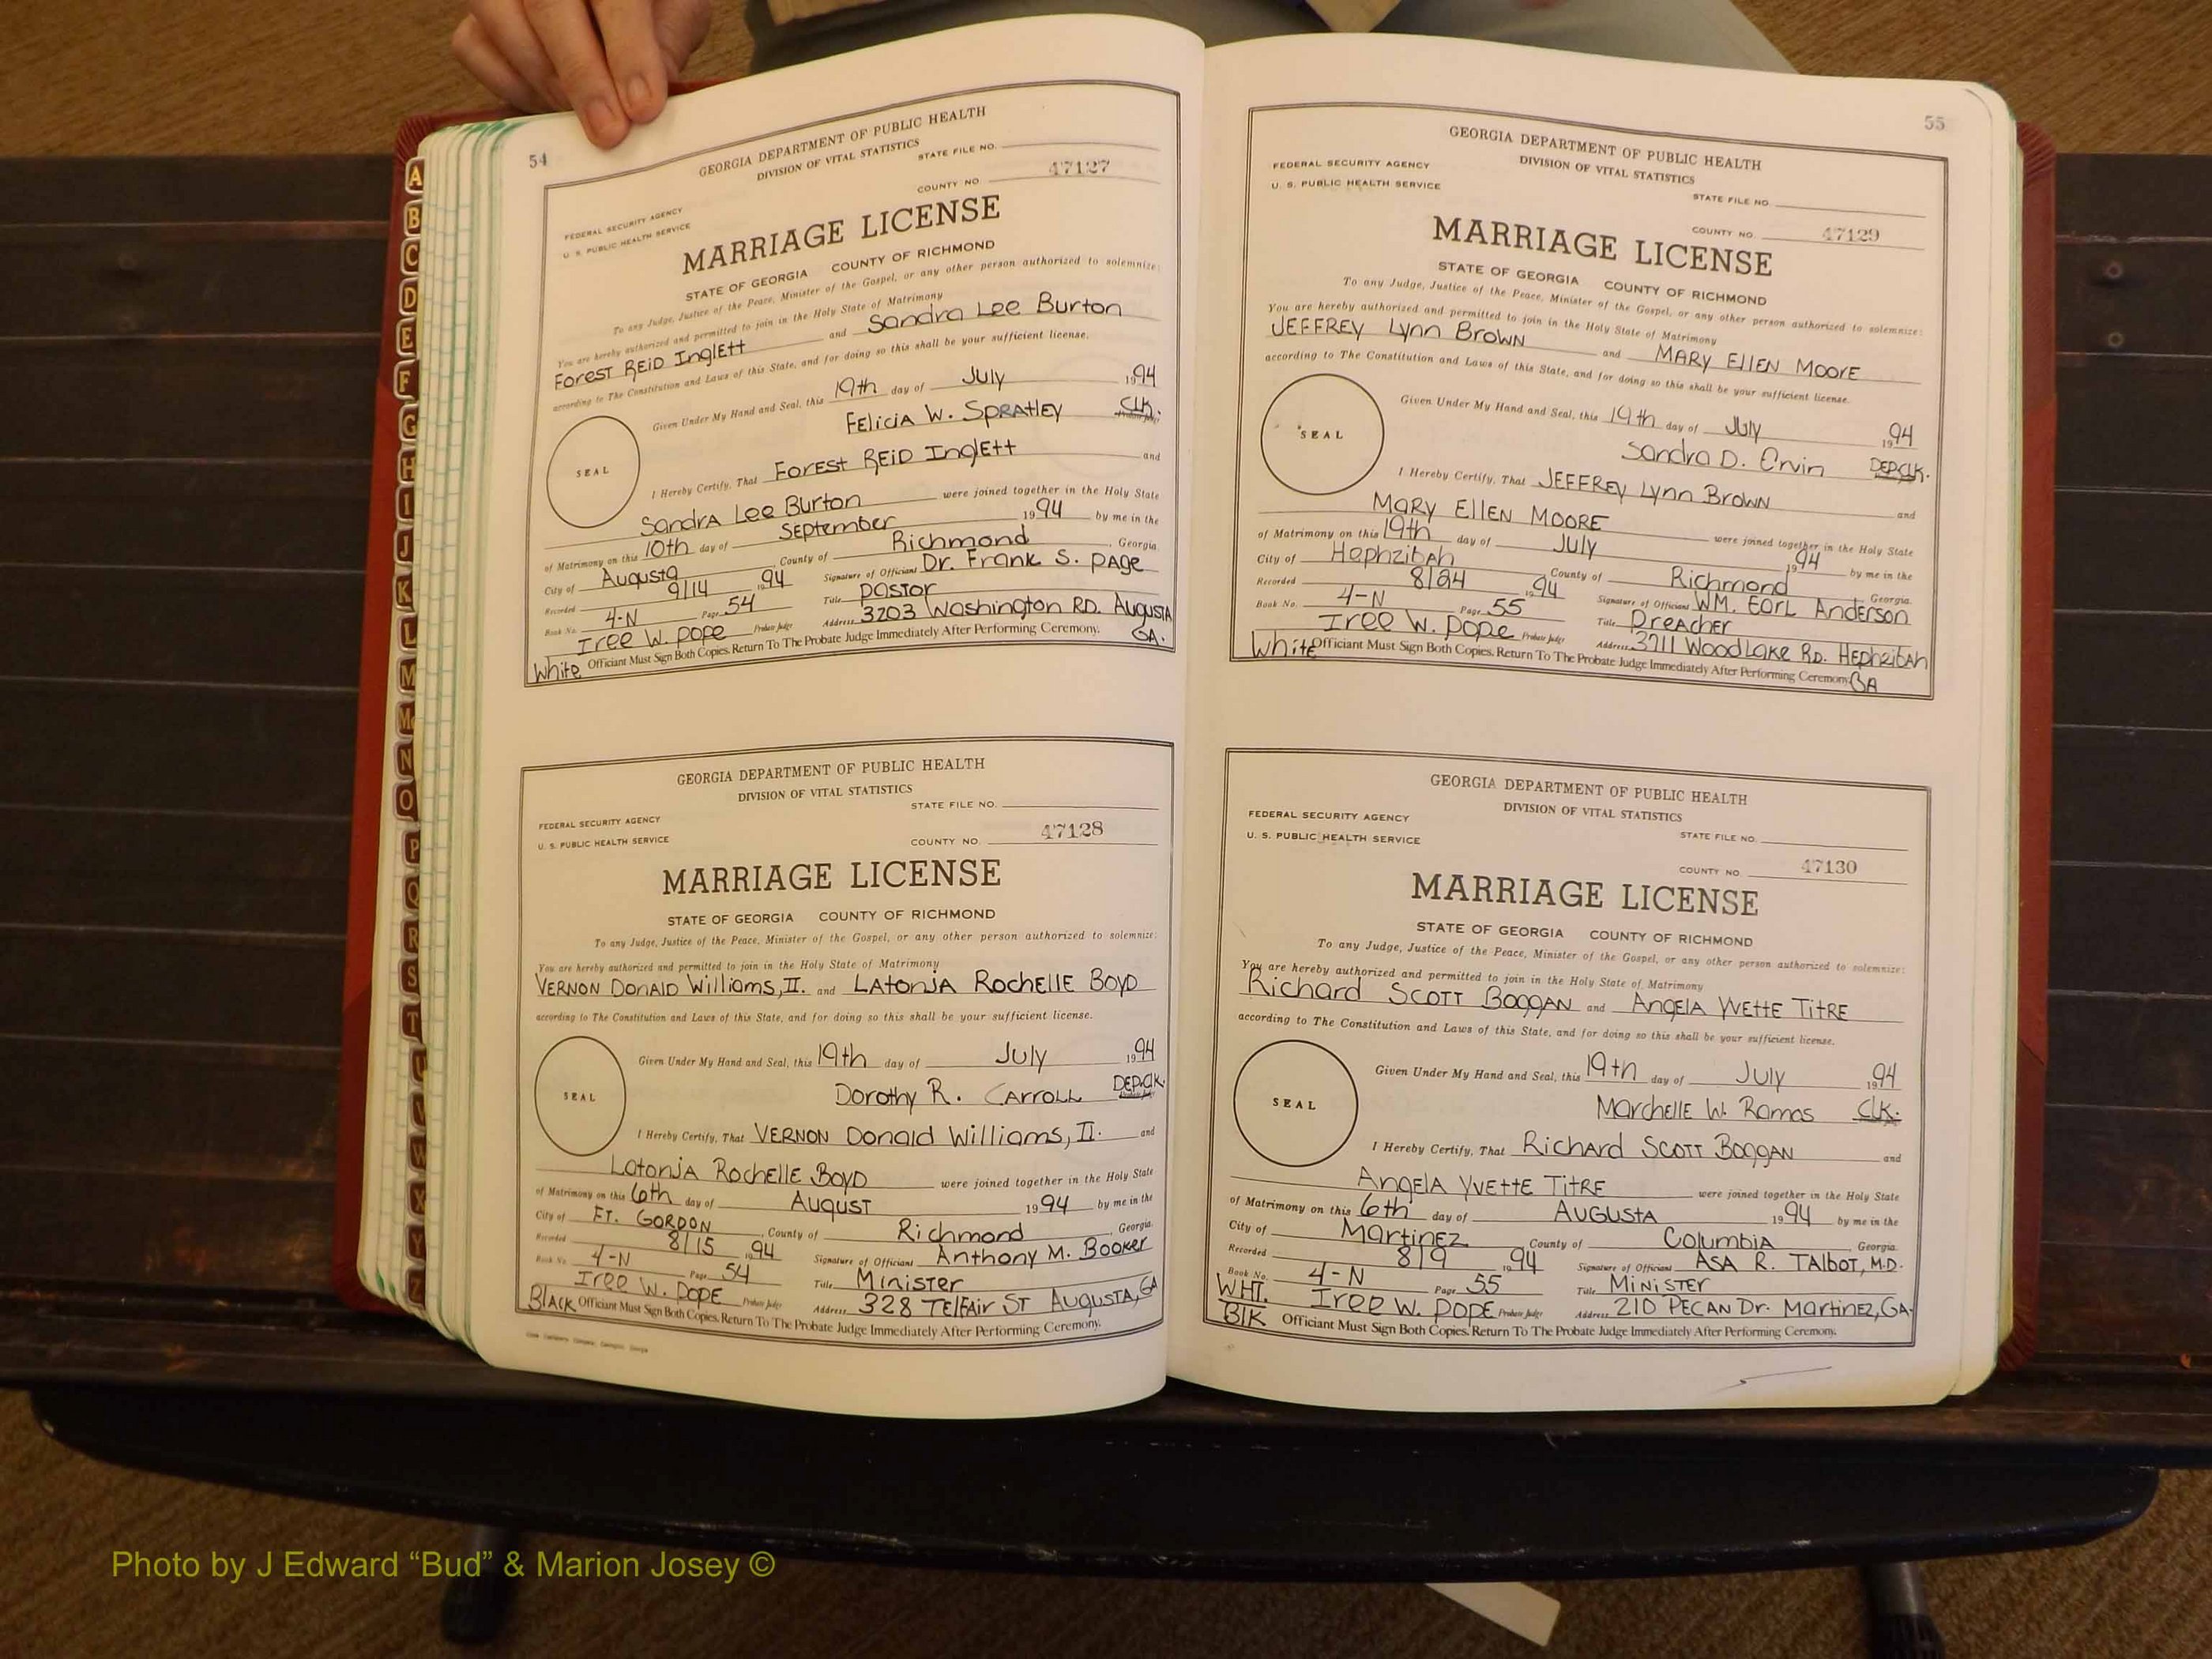 54
GEORGIA DEPARTMENT OF PUBLIC HEALTH
DIVISION OF VITAL STATISTICS
STATE FILE NO.
COUNTY NO 47127
FEDERAL SECURITY AGENCY
U. S. PUBLIC HEALTH SERVICE
MARRIAGE LICENSE
STATE OF GEORGIA COUNTY OF RICHMOND
To any Judge, Justice of the Peace, Minister of the Gospel, or any other person authorized to solemnize:
You are hereby authorized and permitted to join in the Holy State of Matrimony
Forest REiD InglEtt and Sandra Lee Burton
according to The Constitution and Laws of this State, and for doing so this shall be your sufficient license.
Given Under My Hand and Seal, this 19th day of July 1994
FEliciA W. SpRAtlEy CLK.
SEAL
I Hereby Certify, That ForESt REiD InglEtt and
SandrA LEE Burton were joined together in the Holy State
of Matrimony on this 10th day of September 1994 by me in the
City of Augusta County of Richmond, Georgia.
Recorded 9/14 1994 Signature of Officiant Dr. Frank S. PAge
Book No. 4-N Page 54 Title PAStor
IreE W. pope Probate Judge Address 3203 Washington RD. AugustA GA.
White Officiant Must Sign Both Copies. Return To The Probate Judge Immediately After Performing Ceremony.
GEORGIA DEPARTMENT OF PUBLIC HEALTH
DIVISION OF VITAL STATISTICS
STATE FILE NO.
FEDERAL SECURITY AGENCY
U. S. PUBLIC HEALTH SERVICE
COUNTY NO. 47128
MARRIAGE LICENSE
STATE OF GEORGIA COUNTY OF RICHMOND
To any Judge, Justice of the Peace, Minister of the Gospel, or any other person authorized to solemnize:
You are hereby authorized and permitted to join in the Holy State of Matrimony
VERNON DonAlD Williams, II. and LAtonJA RochELLE BoyD
according to The Constitution and Laws of this State, and for doing so this shall be your sufficient license.
Given Under My Hand and Seal, this 19th day of July 1994
Dorothy R. CArroll DEP.CLK.
SEAL
I Hereby Certify, That VERNON Donald Williams, II. and
LatonJA RochElle BoyD were joined together in the Holy State
of Matrimony on this 6th day of AuguST 1994 by me in the
City of FT. GORDON, County of Richmond, Georgia.
Recorded 8/15 1994 Signature of Officiant Anthony M. Booker
Book No. 4-N Page 54 Title MinisTer
IreE W. POPE Probate Judge Address 328 TElfAir ST AuguSTA, GA
BlACK Officiant Must Sign Both Copies. Return To The Probate Judge Immediately After Performing Ceremony.
55
GEORGIA DEPARTMENT OF PUBLIC HEALTH
DIVISION OF VITAL STATISTICS
FEDERAL SECURITY AGENCY
U. S. PUBLIC HEALTH SERVICE
STATE FILE NO.
COUNTY NO. 47129
MARRIAGE LICENSE
STATE OF GEORGIA COUNTY OF RICHMOND
To any Judge, Justice of the Peace, Minister of the Gospel, or any other person authorized to solemnize:
You are hereby authorized and permitted to join in the Holy State of Matrimony
JEFFREy Lynn BrowN and MARy EllEN MoorE
according to The Constitution and Laws of this State, and for doing so this shall be your sufficient license.
Given Under My Hand and Seal, this 19th day of July 1994
Sandra D. Ervin DEP.CLK.
SEAL
I Hereby Certify, That JEFFREy Lynn BrowN and
MARy EllEN MOORE were joined together in the Holy State
of Matrimony on this 19th day of July 1994 by me in the
City of HephzibAh County of Richmond Georgia.
Recorded 8/24 1994 Signature of Officiant WM. EArL Anderson
Book No. 4-N Page 55 Title PreAcher
IreE W. POPE Probate Judge Address 3711 WoodLake RD. HephzibAh GA
White Officiant Must Sign Both Copies. Return To The Probate Judge Immediately After Performing Ceremony.
GEORGIA DEPARTMENT OF PUBLIC HEALTH
DIVISION OF VITAL STATISTICS
FEDERAL SECURITY AGENCY
U. S. PUBLIC HEALTH SERVICE
STATE FILE NO.
COUNTY NO 47130
MARRIAGE LICENSE
STATE OF GEORGIA COUNTY OF RICHMOND
To any Judge, Justice of the Peace, Minister of the Gospel, or any other person authorized to solemnize:
You are hereby authorized and permitted to join in the Holy State of Matrimony
Richard SCOTT BoggAN and AngElA YvEttE TitRE
according to The Constitution and Laws of this State, and for doing so this shall be your sufficient license.
Given Under My Hand and Seal, this 19th day of July 1994
MarchellE W. Ramos CLK.
SEAL
I Hereby Certify, That Richard SCOTT BoggAN and
AngElA YvEttE TitRE were joined together in the Holy State
of Matrimony on this 6th day of AuguStA 1994 by me in the
City of MArtinEZ County of ColumbiA, Georgia.
Recorded 8/9 1994 Signature of Officiant ASA R. TAlboT, M.D.
Book No. 4-N Page 55 Title MiNiSTER
WHT. IreE W. POPE Probate Judge Address 210 PECAN Dr. MArtinEZ, GA.
BlK Officiant Must Sign Both Copies. Return To The Probate Judge Immediately After Performing Ceremony.
A
B
C
D
E
F
G
H
I
J
K
L
M
Mc
N
O
P
Q
R
S
T
U
V
W
X
Y
Z
Photo by J Edward “Bud” & Marion Josey ©